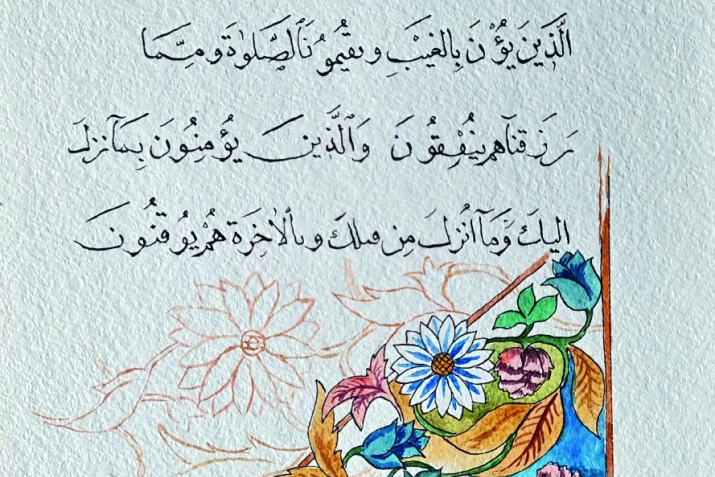 الَّذِينَ يُؤْنَ بِالغَيْبِ ويقيمُونَ ٱلصَّلوٰةَ ومِمَّا
رَزَقناهم يُنْفِقُونَ وَالَّذِينَ يُؤمِنُونَ بِمَآ انزل
اليكَ وَمَآ اُنزلَ مِن قبلك وبالاٰخِرَة هُمْ يُوقنُونَ